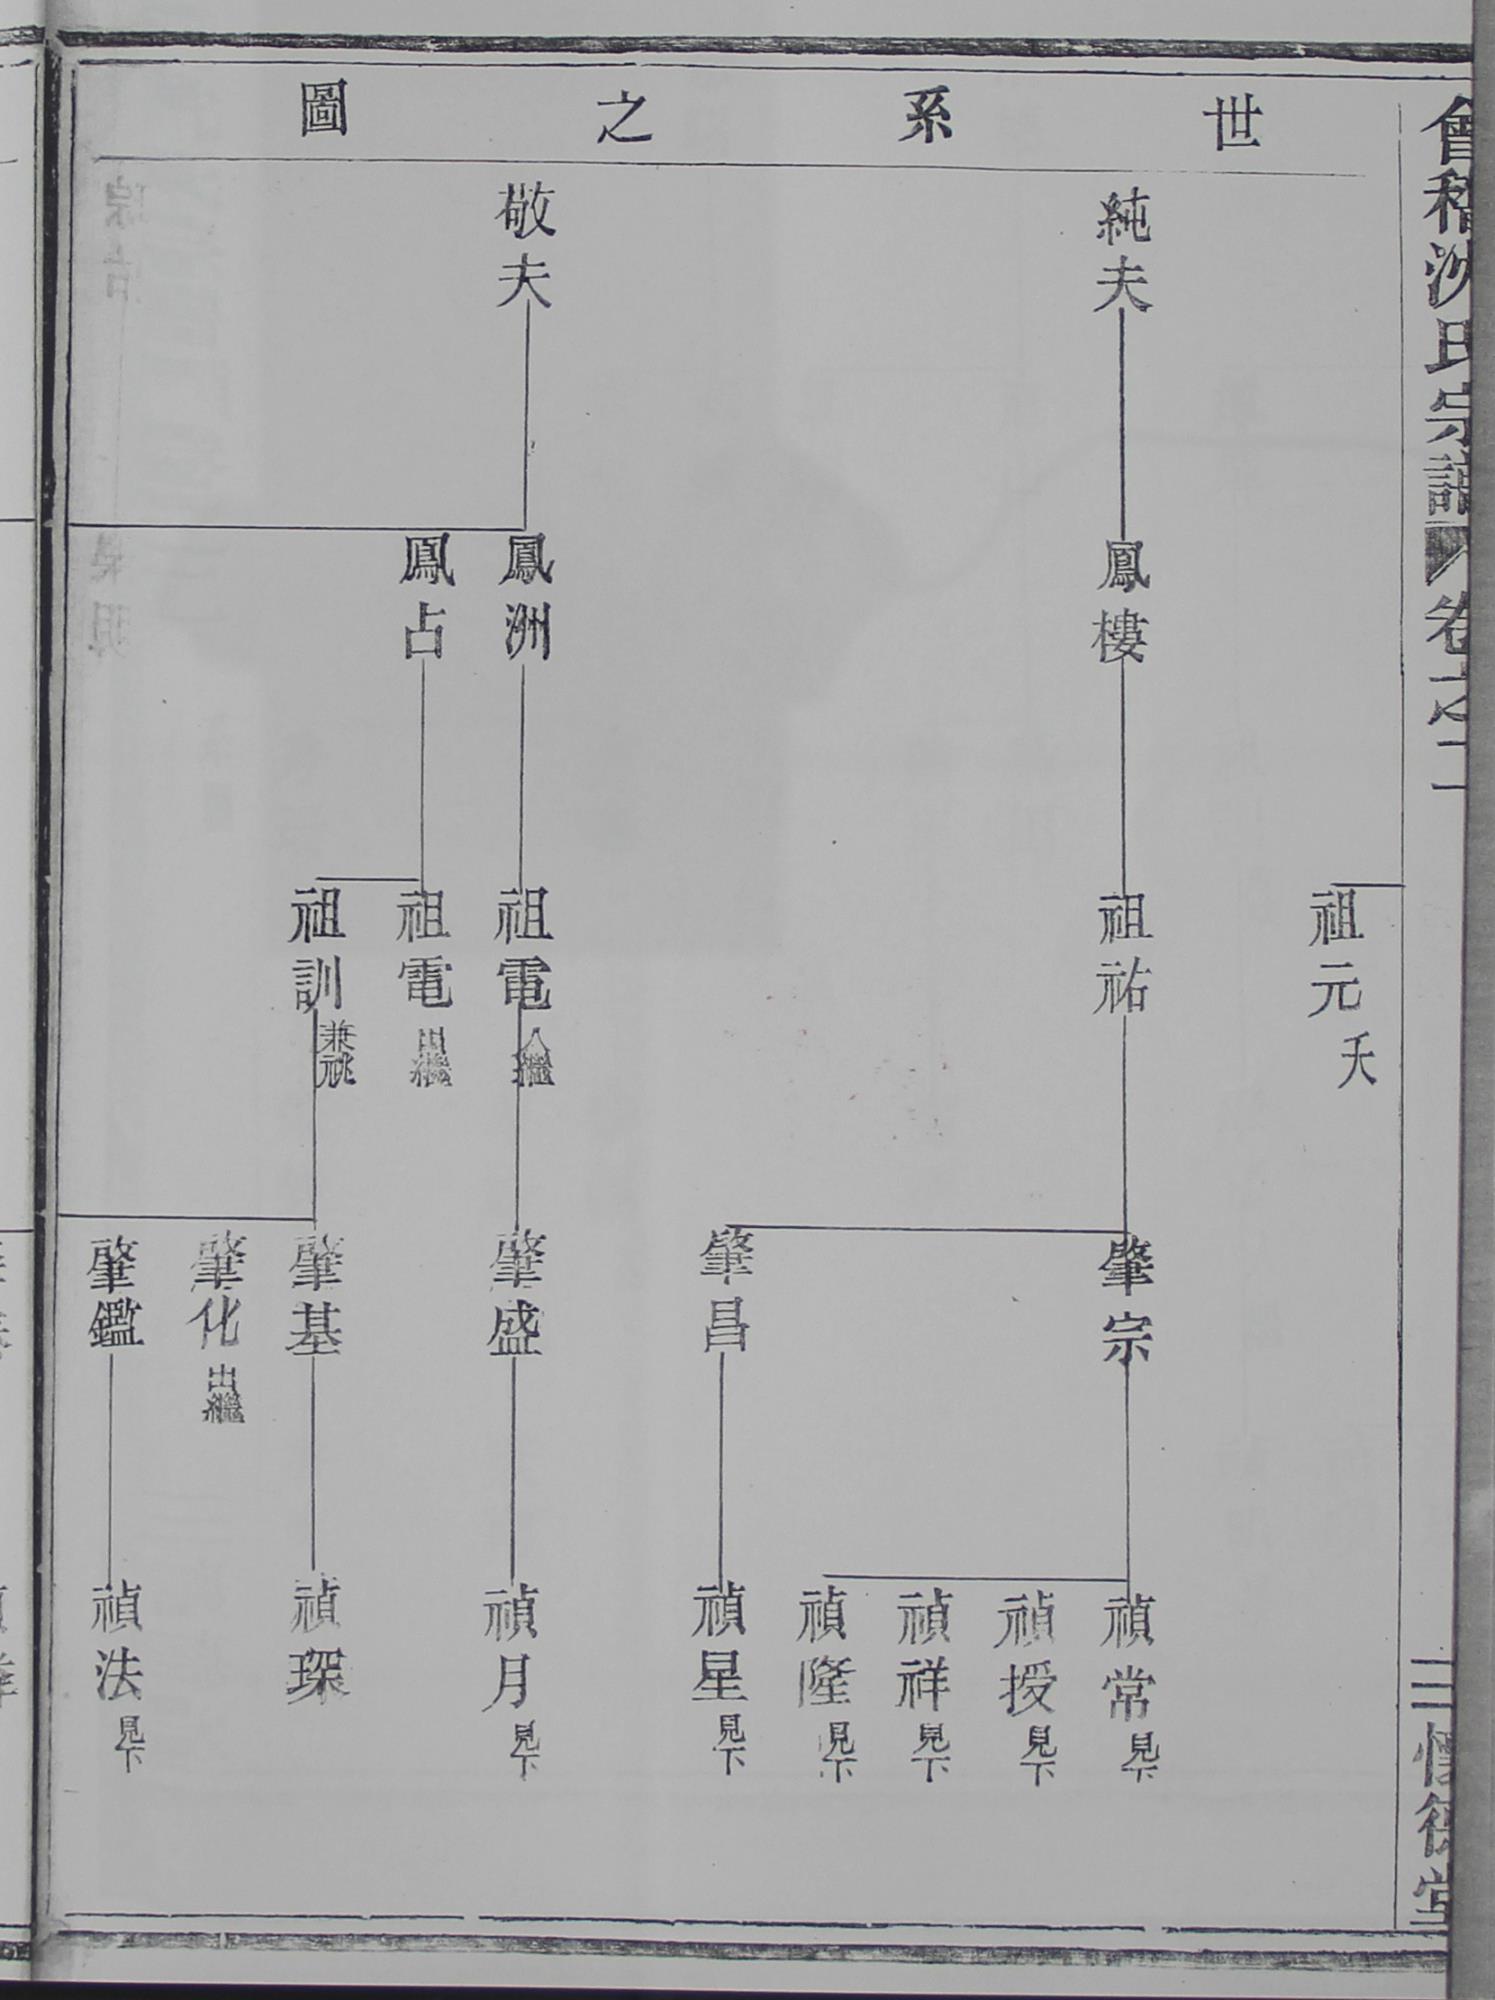 會稽沈氏宗譜 卷之二
世系之圖
純夫 敬夫
鳳樓 鳳洲 鳳占
祖元 夭 祖祐 祖電 入繼 祖電 出繼 祖訓 兼祧
肇宗 肇昌 肇盛 肇基 肇化 出繼 肇鑑
禎常 見下 禎授 見下 禎祥 見下 禎隆 見下 禎星 見下 禎月 見下 禎琛 禎法 見下
德堂